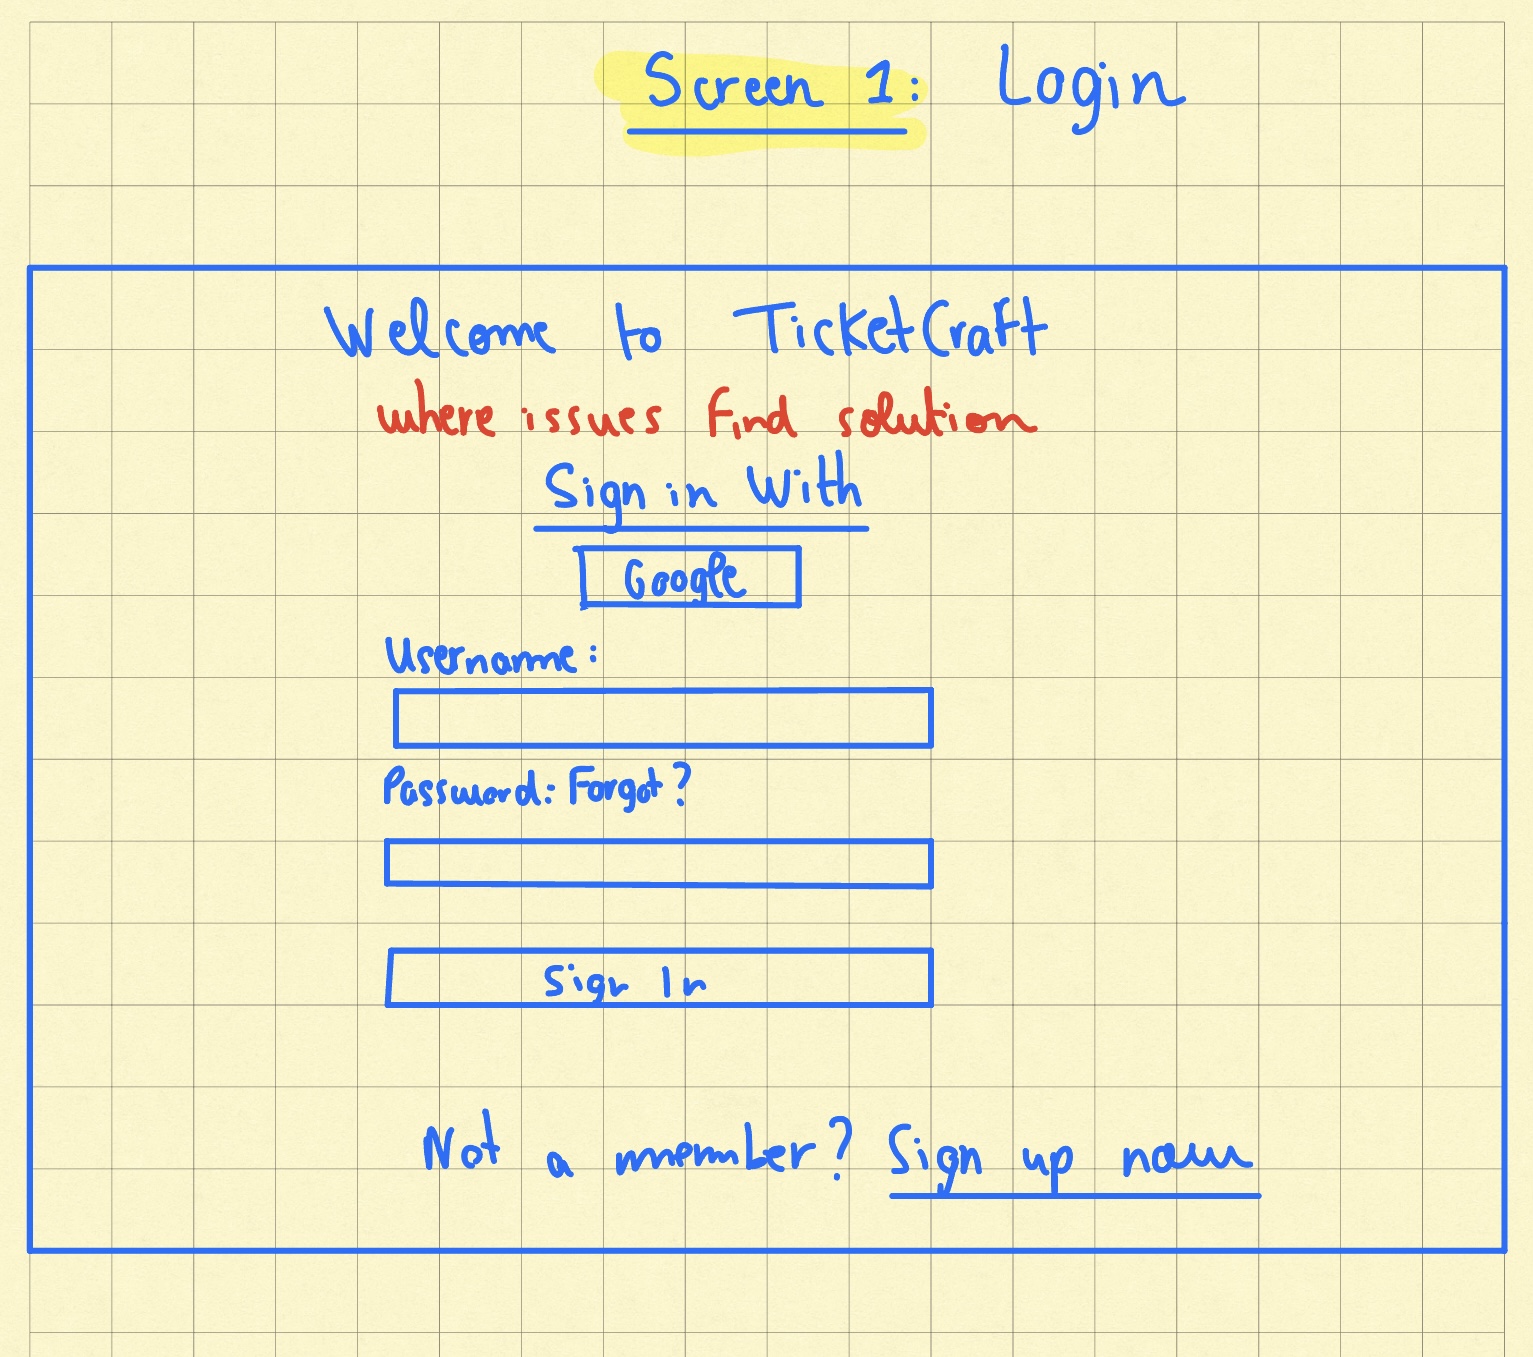 Screen 1: Login
Welcome to TicketCraft
where issues find solution
Sign in With
Google
Username:
Password: Forgot?
Sign In
Not a member? Sign up now